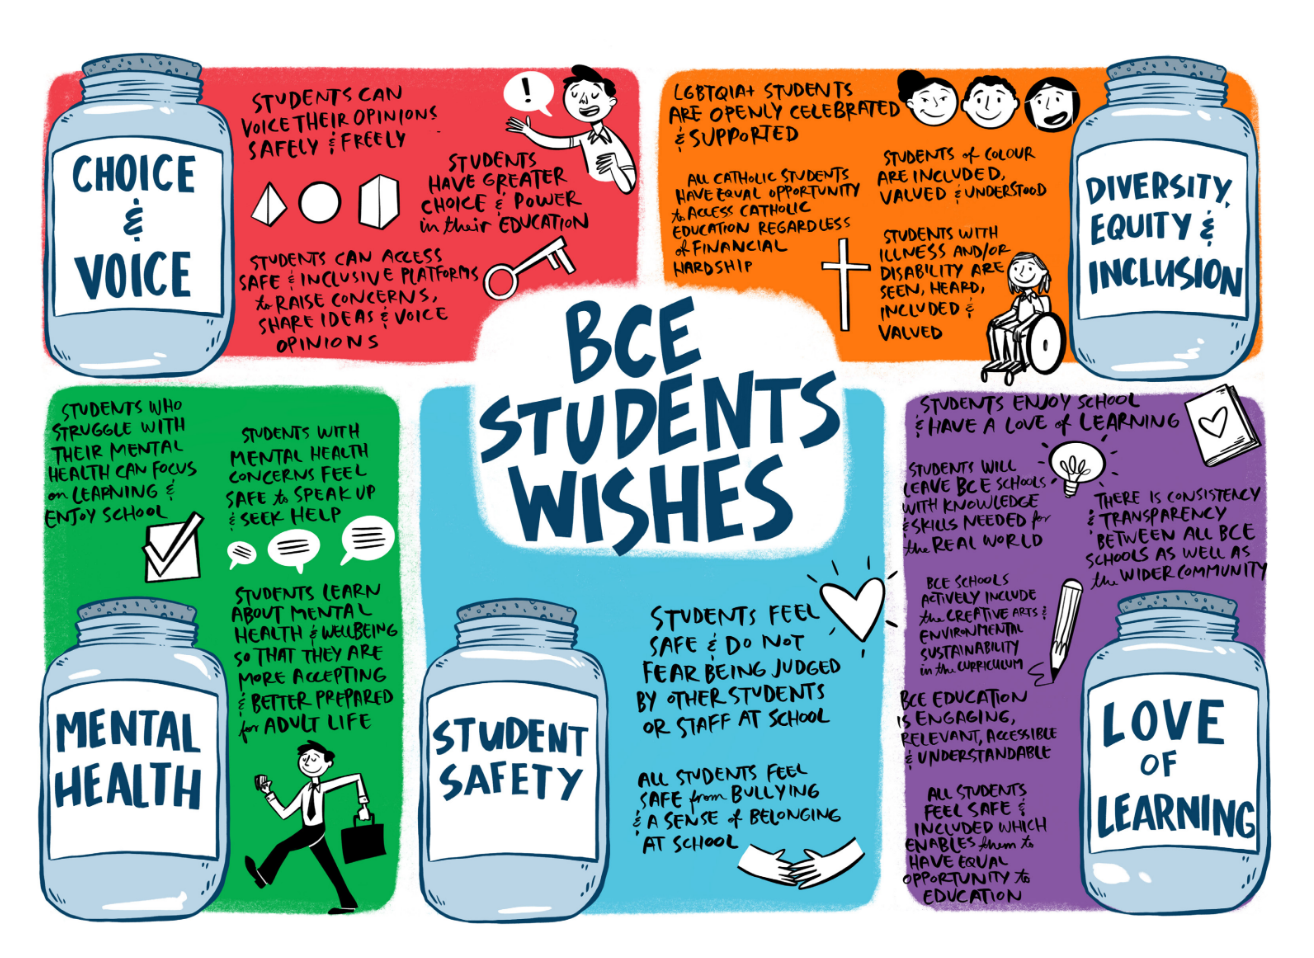 CHOICE
&
VOICE
STUDENTS CAN
VOICE THEIR OPINIONS
SAFELY & FREELY
!
STUDENTS
HAVE GREATER
CHOICE & POWER
in their EDUCATION
STUDENTS CAN ACCESS
SAFE & INCLUSIVE PLATFORMS
to RAISE CONCERNS,
SHARE IDEAS & VOICE
OPINIONS
LGBTQIA+ STUDENTS
ARE OPENLY CELEBRATED
& SUPPORTED
ALL CATHOLIC STUDENTS
HAVE EQUAL OPPORTUNITY
to ACCESS CATHOLIC
EDUCATION REGARDLESS
of FINANCIAL
HARDSHIP
STUDENTS of COLOUR
ARE INCLUDED,
VALUED & UNDERSTOOD
STUDENTS WITH
ILLNESS AND/OR
DISABILITY ARE
SEEN, HEARD,
INCLUDED &
VALUED
DIVERSITY,
EQUITY &
INCLUSION
BCE
STUDENTS
WISHES
STUDENTS WHO
STRUGGLE WITH
THEIR MENTAL
HEALTH CAN FOCUS
on LEARNING &
ENJOY SCHOOL
STUDENTS WITH
MENTAL HEALTH
CONCERNS FEEL
SAFE to SPEAK UP
& SEEK HELP
STUDENTS LEARN
ABOUT MENTAL
HEALTH & WELLBEING
SO THAT THEY ARE
MORE ACCEPTING
& BETTER PREPARED
for ADULT LIFE
MENTAL
HEALTH
STUDENT
SAFETY
STUDENTS FEEL
SAFE & DO NOT
FEAR BEING JUDGED
BY OTHER STUDENTS
OR STAFF AT SCHOOL
ALL STUDENTS FEEL
SAFE from BULLYING
& A SENSE of BELONGING
AT SCHOOL
STUDENTS ENJOY SCHOOL
& HAVE A LOVE of LEARNING
STUDENTS WILL
LEAVE BCE SCHOOLS
WITH KNOWLEDGE
& SKILLS NEEDED for
the REAL WORLD
THERE IS CONSISTENCY
& TRANSPARENCY
BETWEEN ALL BCE
SCHOOLS AS WELL AS
the WIDER COMMUNITY
BCE SCHOOLS
ACTIVELY INCLUDE
the CREATIVE ARTS &
ENVIRONMENTAL
SUSTAINABILITY
in the CURRICULUM
BCE EDUCATION
IS ENGAGING,
RELEVANT, ACCESSIBLE
& UNDERSTANDABLE
ALL STUDENTS
FEEL SAFE &
INCLUDED WHICH
ENABLES them to
HAVE EQUAL
OPPORTUNITY to
EDUCATION
LOVE
OF
LEARNING